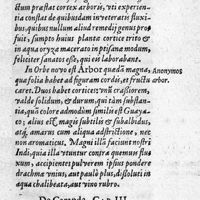 iuum præstat cortex arboris, vti experien
tia constat de quibusdam inueteratis fluxi
bus, quibus nullum aliud remedij genus pro
fuit, sumpto huius plantæ cortice trito &
in aqua oryzæ macerato in ptisanæ modum,
feliciter sanatos esse, qui eis laborabant.
In Orbe nouo est Arbor quædã magna,
quæ folia habet ad figuram cordis, et fructu
caret. Duos habet cortices: vnũ crassiorem,
valde solidum, & durum, qui tàm substan-
tia, quàm colore admodum similis est Guaya-
co; alius est magis subtilis & subalbidus,
atq; subamarus, cum aliqua astrictione, nec
non aromaticus. Magni illũ faciunt nostri
Indi, quia illa vtuntur contra quemuis flu-
xum, accipientes puluerem ipsius pondere
drachmæ vnius, aut paulò plus, dissoluti in
aqua chalibeata, aut vino rubro.
Anonymos
arbor.
De Carcapuli. CAP. III.